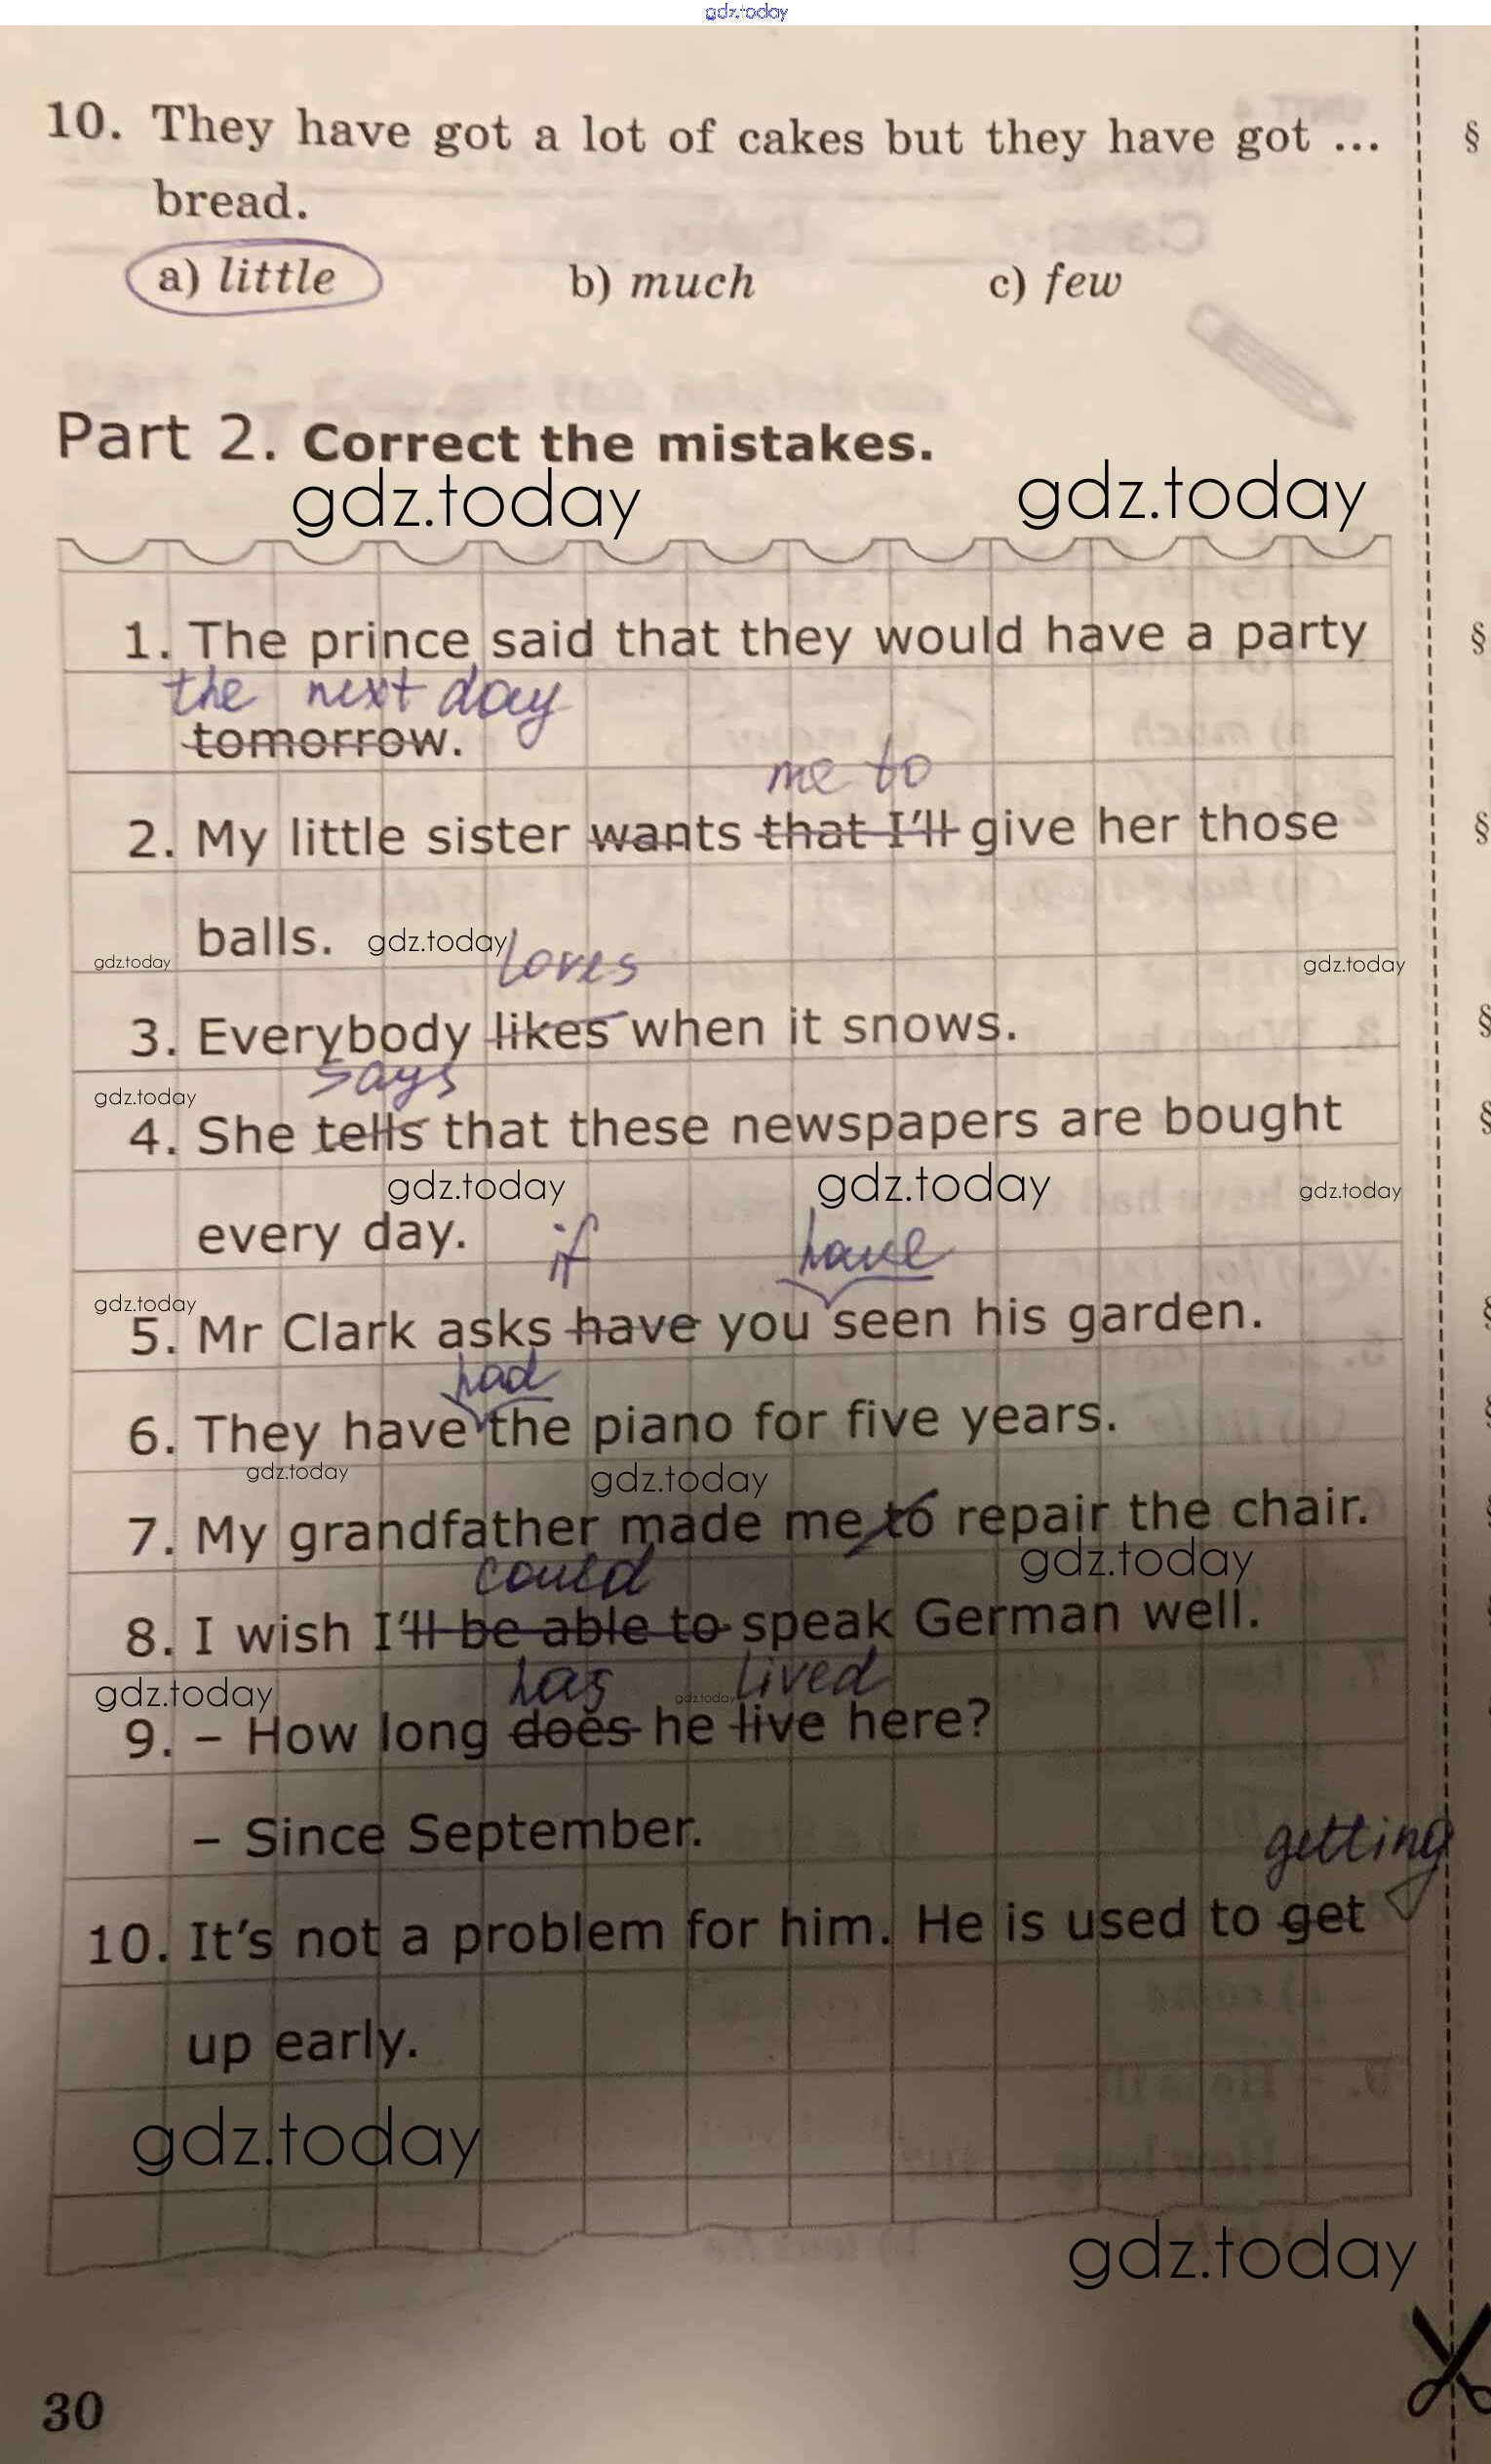 gdz.today
10. They have got a lot of cakes but they have got ... §
bread.
a) little b) much c) few
Part 2. Correct the mistakes.
gdz.today gdz.today
1. The prince said that they would have a party §
the next day
tomorrow.
me to
2. My little sister wants that I'll give her those §
balls. gdz.today
gdz.today loves gdz.today
3. Everybody likes when it snows. §
says
gdz.today
4. She tells that these newspapers are bought §
gdz.today gdz.today gdz.today
every day.
if have
gdz.today
5. Mr Clark asks have you seen his garden. §
had
6. They have the piano for five years. §
gdz.today gdz.today
7. My grandfather made me to repair the chair. §
could gdz.today
8. I wish I'll be able to speak German well.
has lived
gdz.today gdz.today
9. – How long does he live here?
– Since September.
getting
10. It's not a problem for him. He is used to get
up early.
gdz.today
gdz.today
30